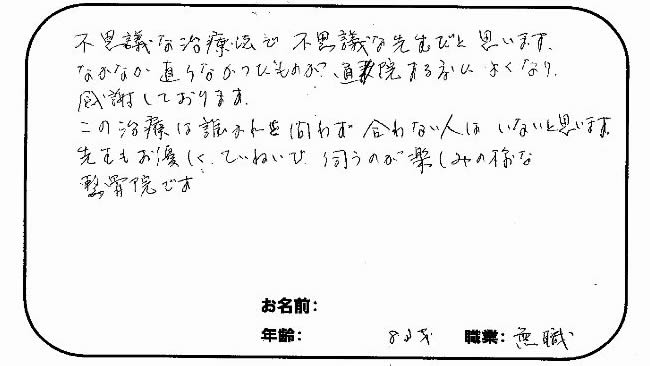 不思議な治療法で 不思議な先生だと 思います。
なかなか 直らなかったものが、通院する毎に よくなり、
感謝しております。
この治療は誰かれを問わず 合わない人は いないと思います。
先生もお優しく、ていねいで 伺うのが 楽しみの様な
整骨院です
お名前:
年齢: 歳 職業: 無職